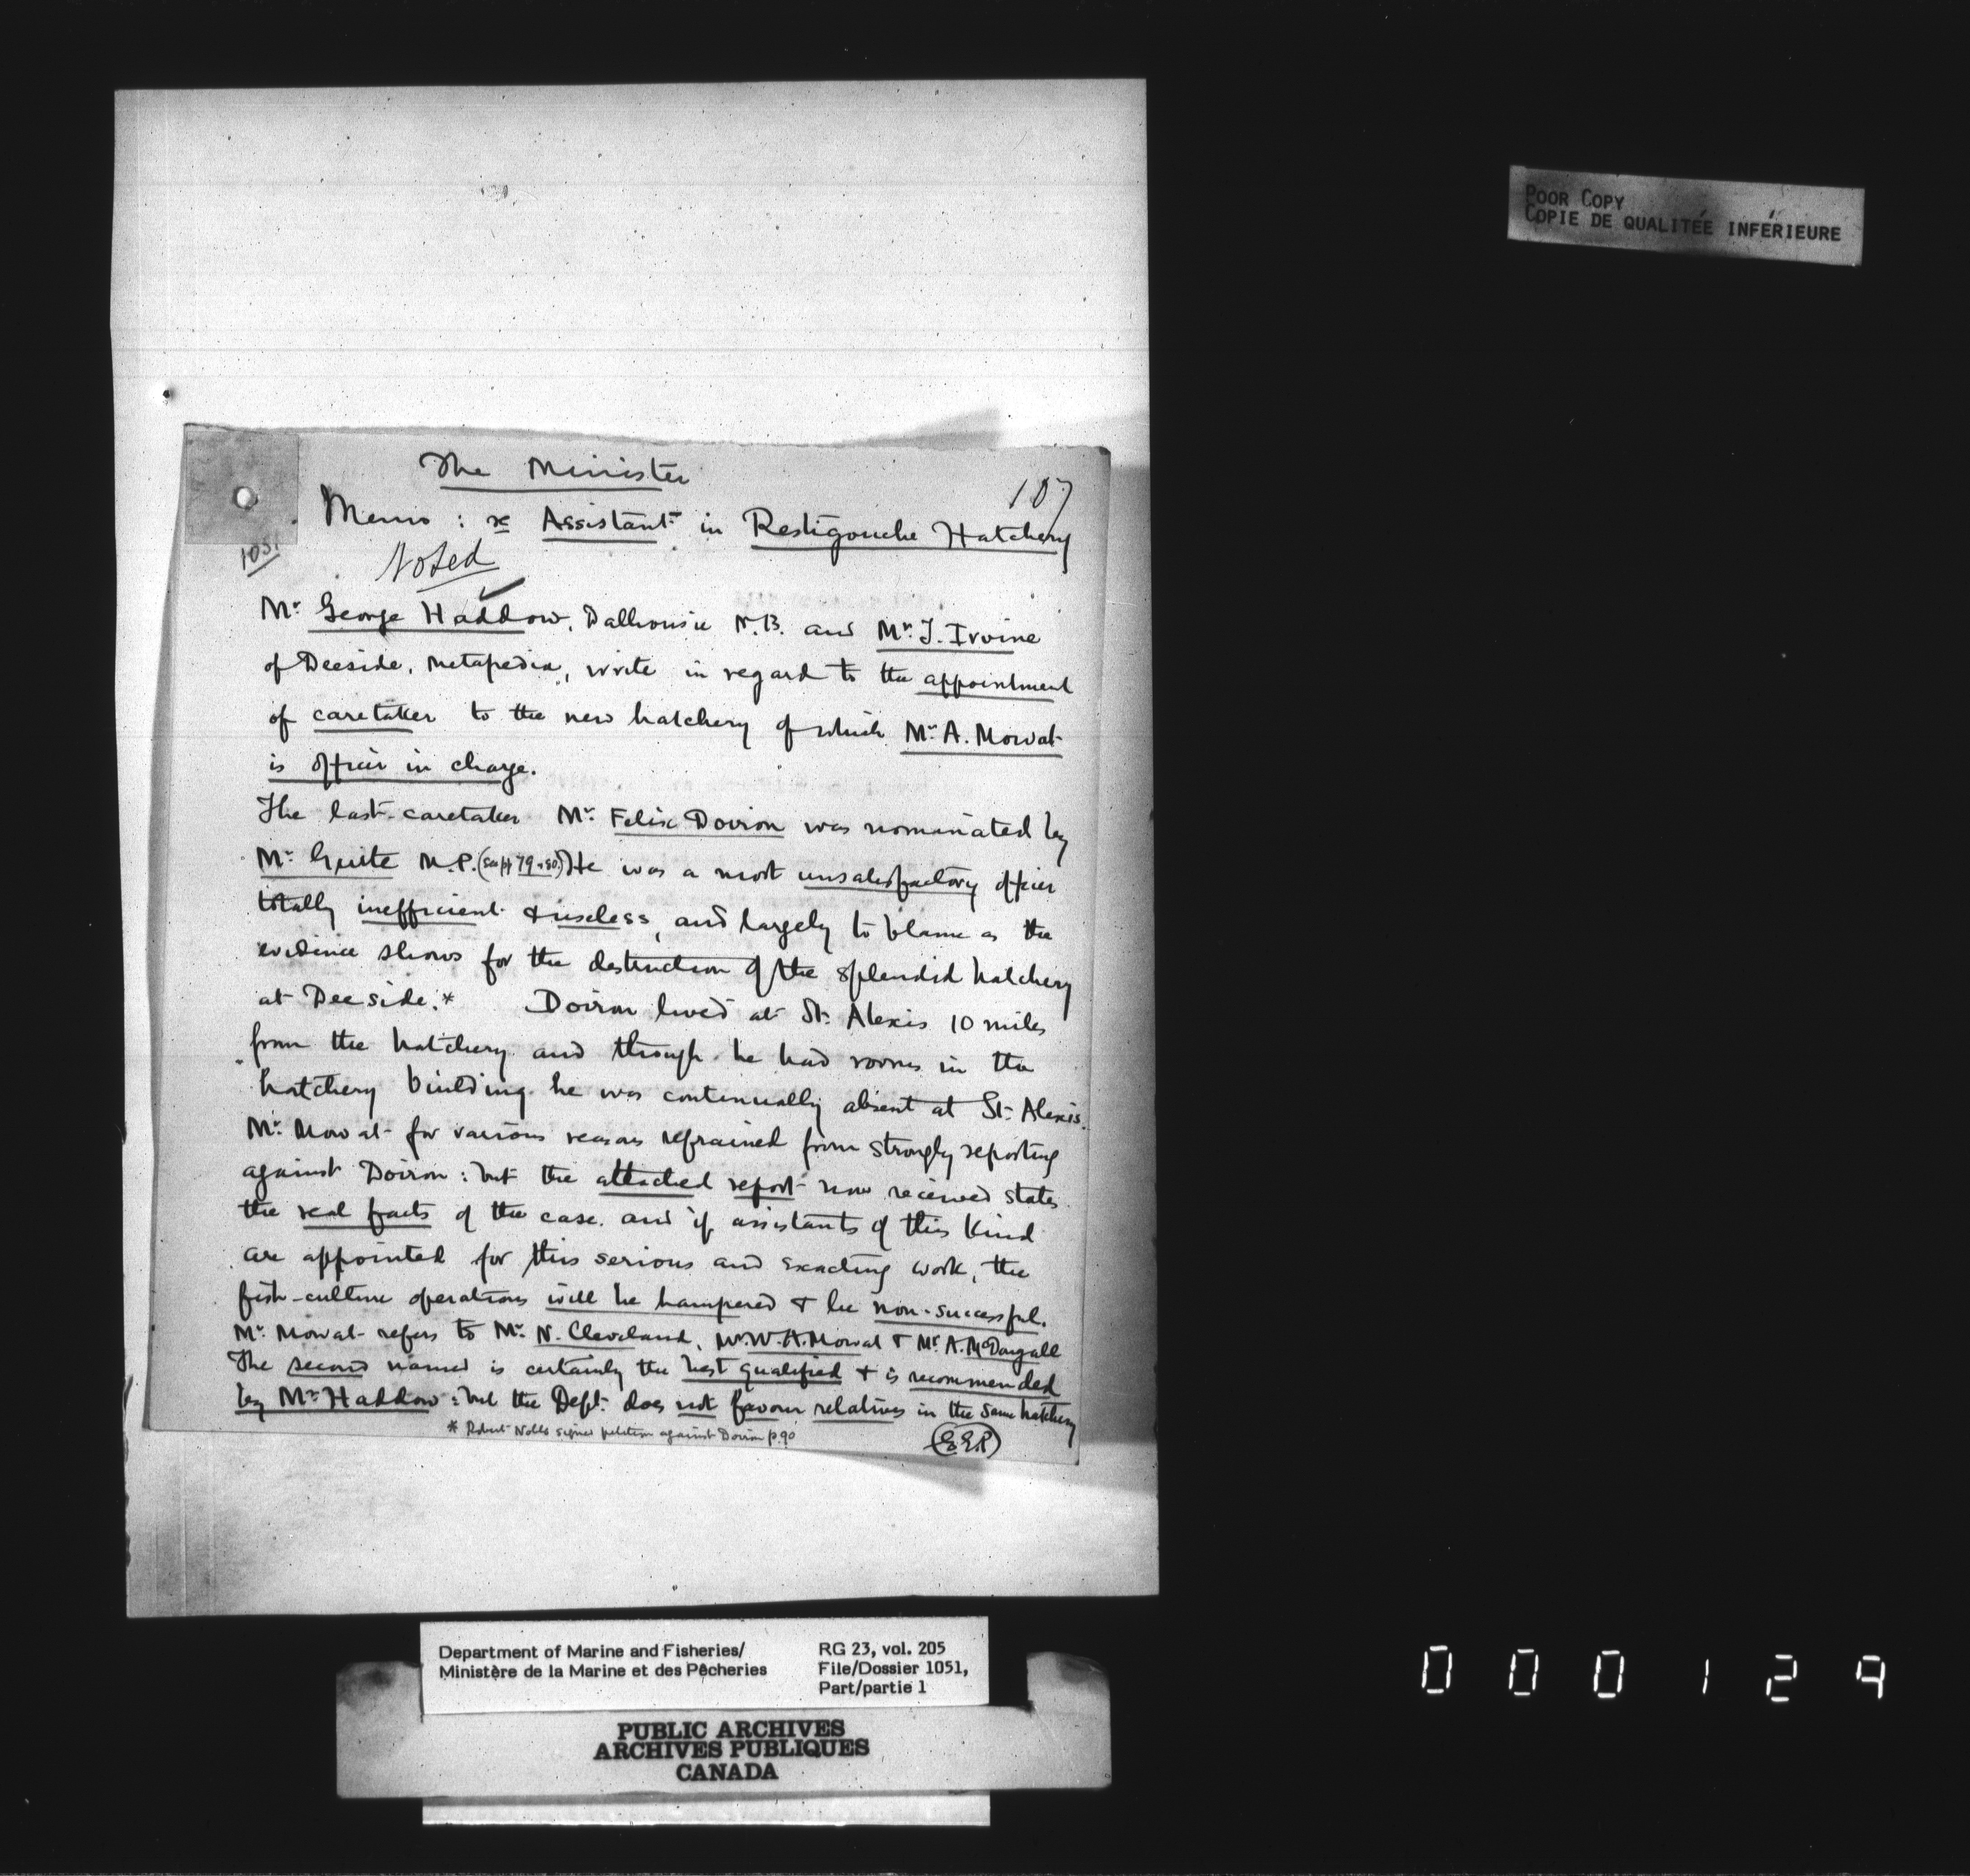 The Minister
107
Memo: re Assistant in Restigouche Hatchery
1051
Noted
Mr. George Haddow, Dalhousie N.B. and Mr. J. Irvine
of Deeside, Metapedia, write in regard to the appointment
of caretaker to the new hatchery of which Mr. A. Mowat
is officer in charge.
The last caretaker Mr. Felix Doiron was nominated by
Mr. Guite M.P. (see pp 79 & 80.) He was a most unsatisfactory officer
totally inefficient & useless, and largely to blame as the
evidence shows for the destruction of the splendid hatchery
at Deeside.* Doiron lived at St. Alexis 10 miles
from the hatchery and though he had rooms in the
hatchery building he was continually absent at St. Alexis.
Mr. Mowat for various reasons refrained from strongly reporting
against Doiron: but the attached report now received states
the real facts of the case. and if assistants of this kind
are appointed for this serious and exacting work, the
fish-culture operations will be hampered & be non-successful.
Mr. Mowat refers to Mr. N. Cleveland, Mr. W. A. Mowat & Mr. A. McDougall
The second named is certainly the best qualified & is recommended
by Mr. Haddow: but the Dept. does not favour relatives in the same hatchery
* Robert Nobls signed petition against Doiron p. 90
(E.E.P)
POOR COPY
COPIE DE QUALITÉE INFÉRIEURE
Department of Marine and Fisheries/
Ministère de la Marine et des Pêcheries
RG 23, vol. 205
File/Dossier 1051,
Part/partie 1
PUBLIC ARCHIVES
ARCHIVES PUBLIQUES
CANADA
000129